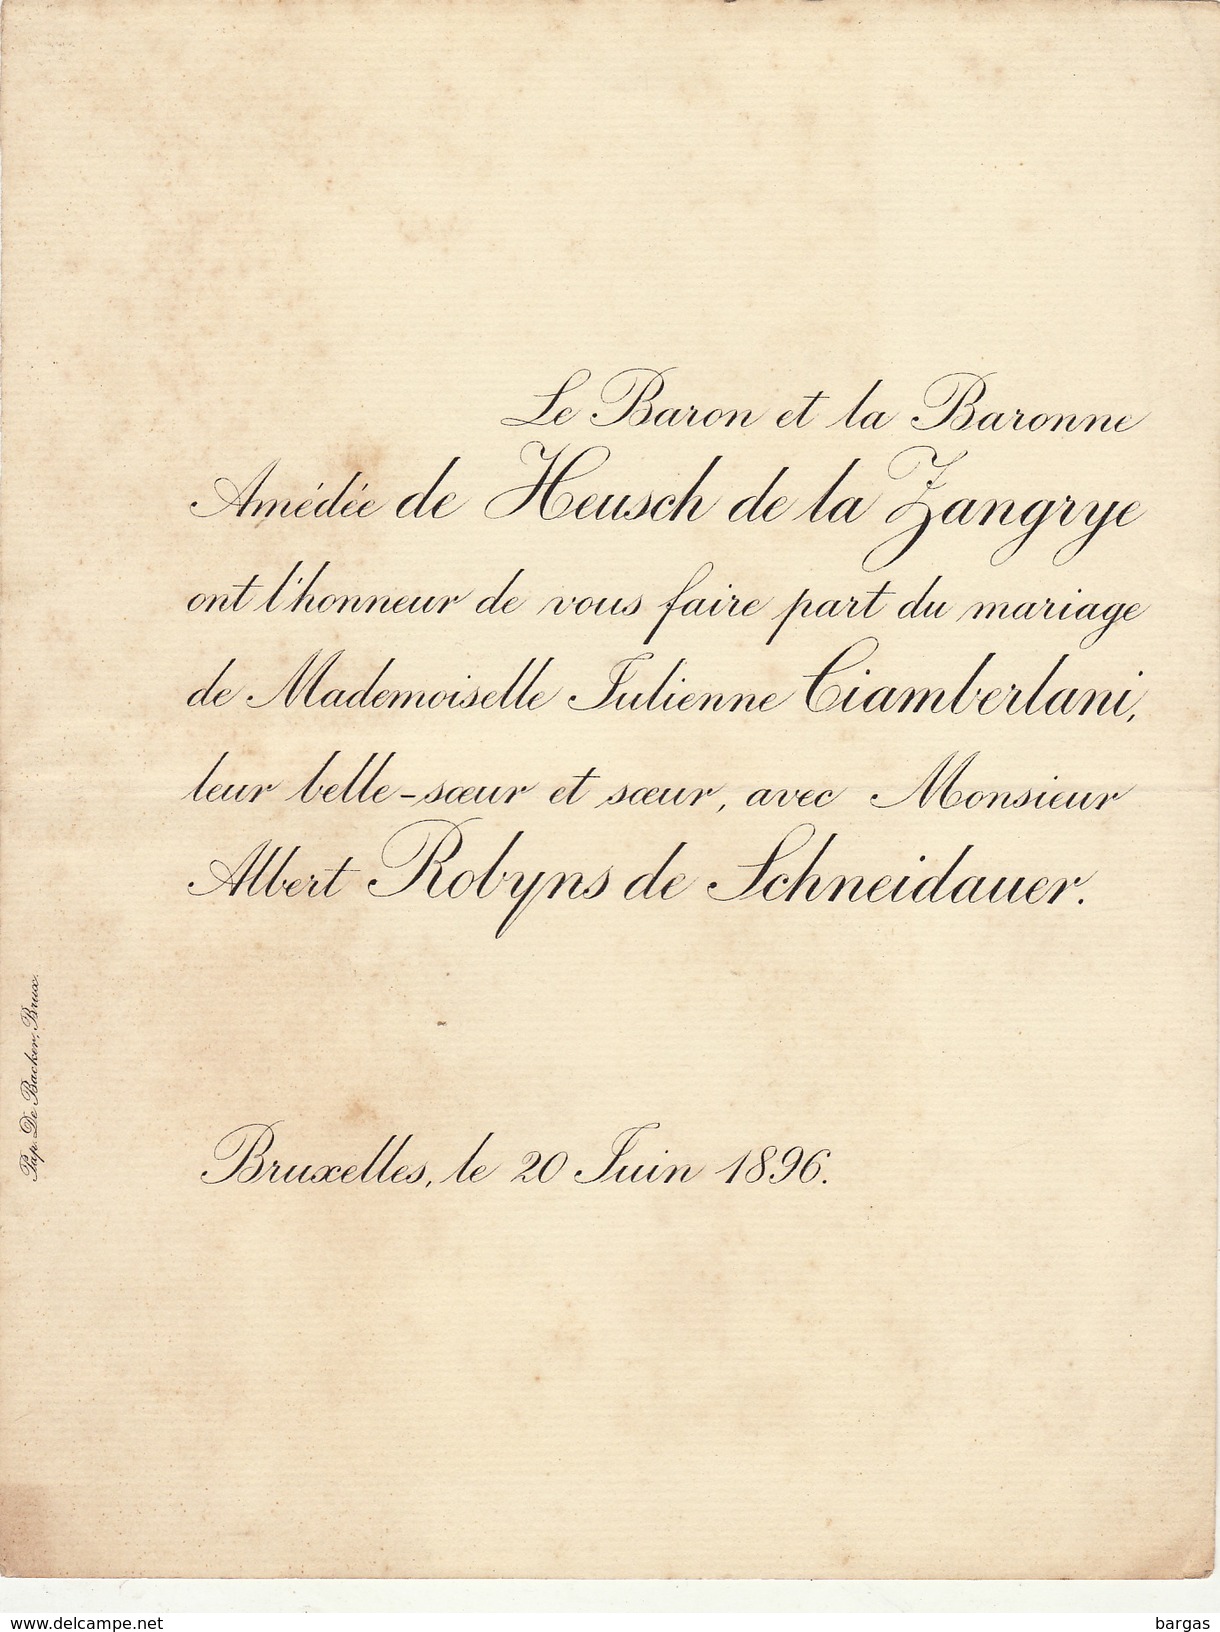 Le Baron et la Baronne
Amédée de Heusch de la Zangrye
ont l'honneur de vous faire part du mariage
de Mademoiselle Julienne Ciamberlani,
leur belle-sœur et sœur, avec Monsieur
Albert Robyns de Schneidauer.
Bruxelles, le 20 Juin 1896.
Pap. De Backer, Brux.
www.delcampe.net
bargas